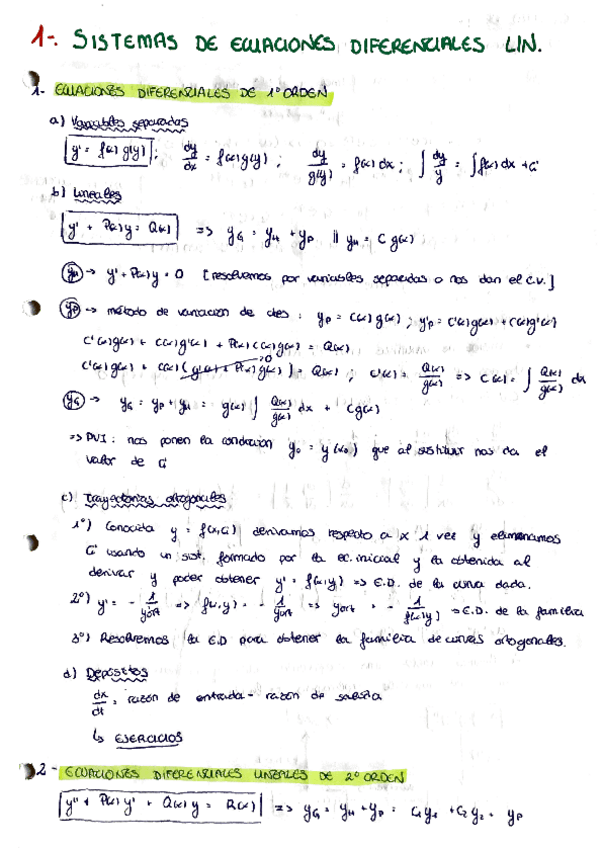 1-. SISTEMAS DE ECUACIONES DIFERENCIALES LIN.
1- ECUACIONES DIFERENCIALES DE 1º ORDEN
a) Variables separadas
y' = f(x) g(y) ; dy/dx = f(x)g(y) ; dy/g(y) = f(x) dx ; ∫ dy/y = ∫ f(x) dx + C
b) Lineales
y' + P(x)y = Q(x) => yG = yH + yP || yH = C g(x)
yH → y' + P(x)y = 0 [resolvemos por variables separadas o nos dan el C.V.]
yP → método de variación de ctes : yP = C(x) g(x) ; y'P = C'(x)g(x) + C(x)g'(x)
C'(x)g(x) + C(x)g'(x) + P(x) C(x)g(x) = Q(x)
C'(x)g(x) + C(x) (g'(x) + P(x)g(x)) = Q(x) ; C'(x) = Q(x)/g(x) => C(x) = ∫ Q(x)/g(x) dx
yG → yG = yP + yH = g(x) ∫ Q(x)/g(x) dx + C g(x)
=> PVI : nos ponen la condición y0 = y(x0) que al sustituir nos da el
valor de C
c) Trayectorias ortogonales
1º) Conocida y = f(x,C) derivamos respecto a x 1 vez y eliminamos
C usando un sist. formado por la ec. inicial y la obtenida al
derivar y poder obtener y' = f(x,y) => E.D. de la curva dada.
2º) y' = - 1/y'ort => f(x,y) = - 1/y'ort => y'ort = - 1/f(x,y) => E.D. de la familia
3º) Resolvemos la E.D para obtener la familia de curvas ortogonales.
d) Depósitos
dx/dt = razón de entrada - razón de salida
↳ EJERCICIOS
2- ECUACIONES DIFERENCIALES LINEALES DE 2º ORDEN
y'' + P(x) y' + Q(x) y = R(x) => yG = yH + yP = C1y1 + C2y2 + yP